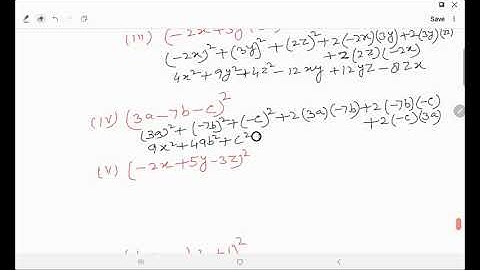 Save
(iii) (-2x+3y
(-2x)²+(3y)²+(2z)²+2(-2x)(3y)+2(3y)(2z)
+2(2z)(-2x)
4x²+9y²+4z²-12xy+12yz-8zx
(iv) (3a-7b-c)²
(3a)²+(-7b)²+(-c)²+2(3a)(-7b)+2(-7b)(-c)
+2(-c)(3a)
9x²+49b²+c²
(v) (-2x+5y-3z)²